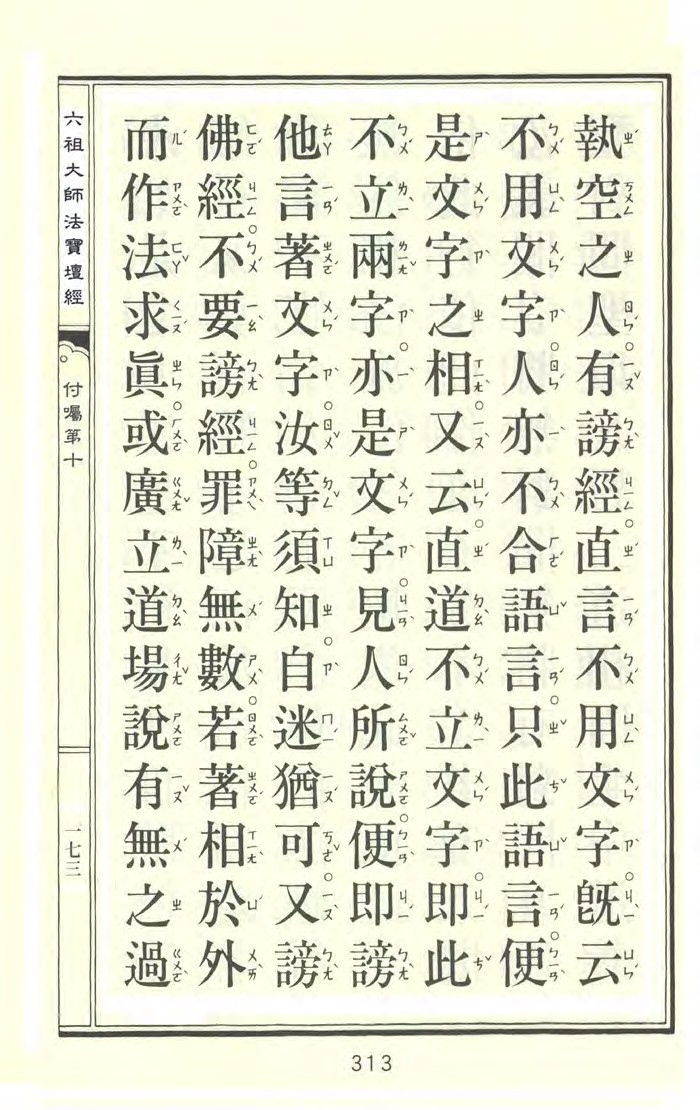 執空之人有謗經直言不用文字既云
不用文字人亦不合語言只此語言便
是文字之相又云直道不立文字即此
不立兩字亦是文字見人所說便即謗
他言著文字汝等須知自迷猶可又謗
佛經不要謗經罪障無數若著相於外
而作法求眞或廣立道場說有無之過
六祖大師法寶壇經
付囑第十
一七三
313